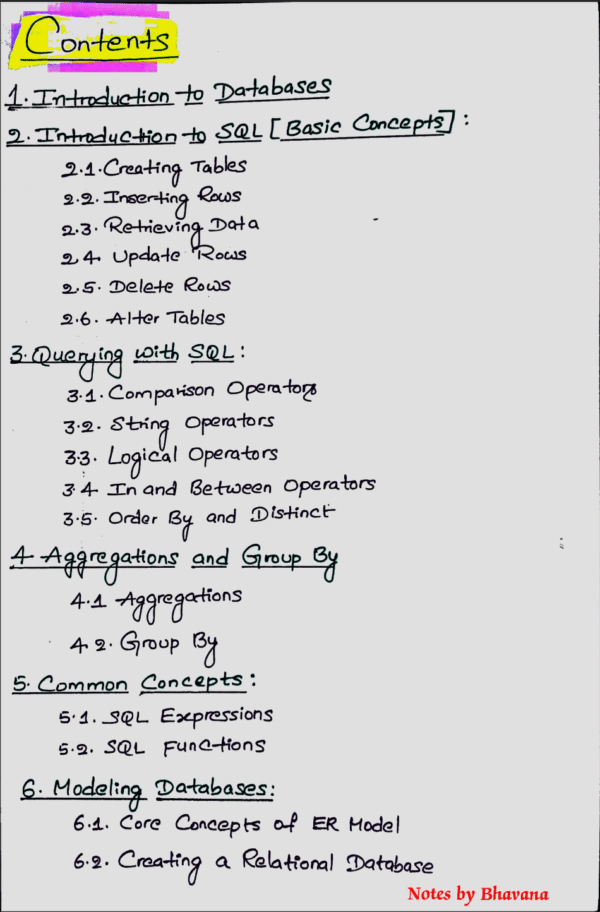 Contents
1. Introduction to Databases
2. Introduction to SQL [Basic Concepts] :
2.1. Creating Tables
2.2. Inserting Rows
2.3. Retrieving Data
2.4. Update Rows
2.5. Delete Rows
2.6. Alter Tables
3. Querying with SQL :
3.1. Comparison Operators
3.2. String Operators
3.3. Logical Operators
3.4 In and Between Operators
3.5. Order By and Distinct
4 Aggregations and Group By
4.1 Aggregations
4.2. Group By
5. Common Concepts :
5.1. SQL Expressions
5.2. SQL Functions
6. Modeling Databases:
6.1. Core Concepts of ER Model
6.2. Creating a Relational Database
Notes by Bhavana